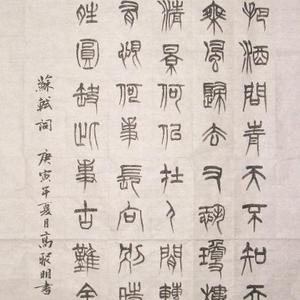 把酒問青天不知天
乘風歸去又恐瓊樓
清影何似在人間轉
有恨何事長向別時
晴圓缺此事古難全
蘇軾詞 庚寅年夏月高黎明書